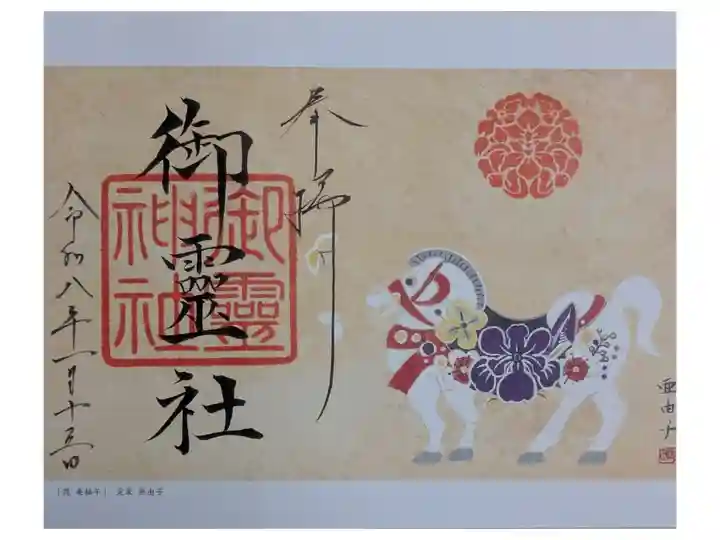 奉拝
御靈社
御靈神社
令和八年一月十三日
亜由子